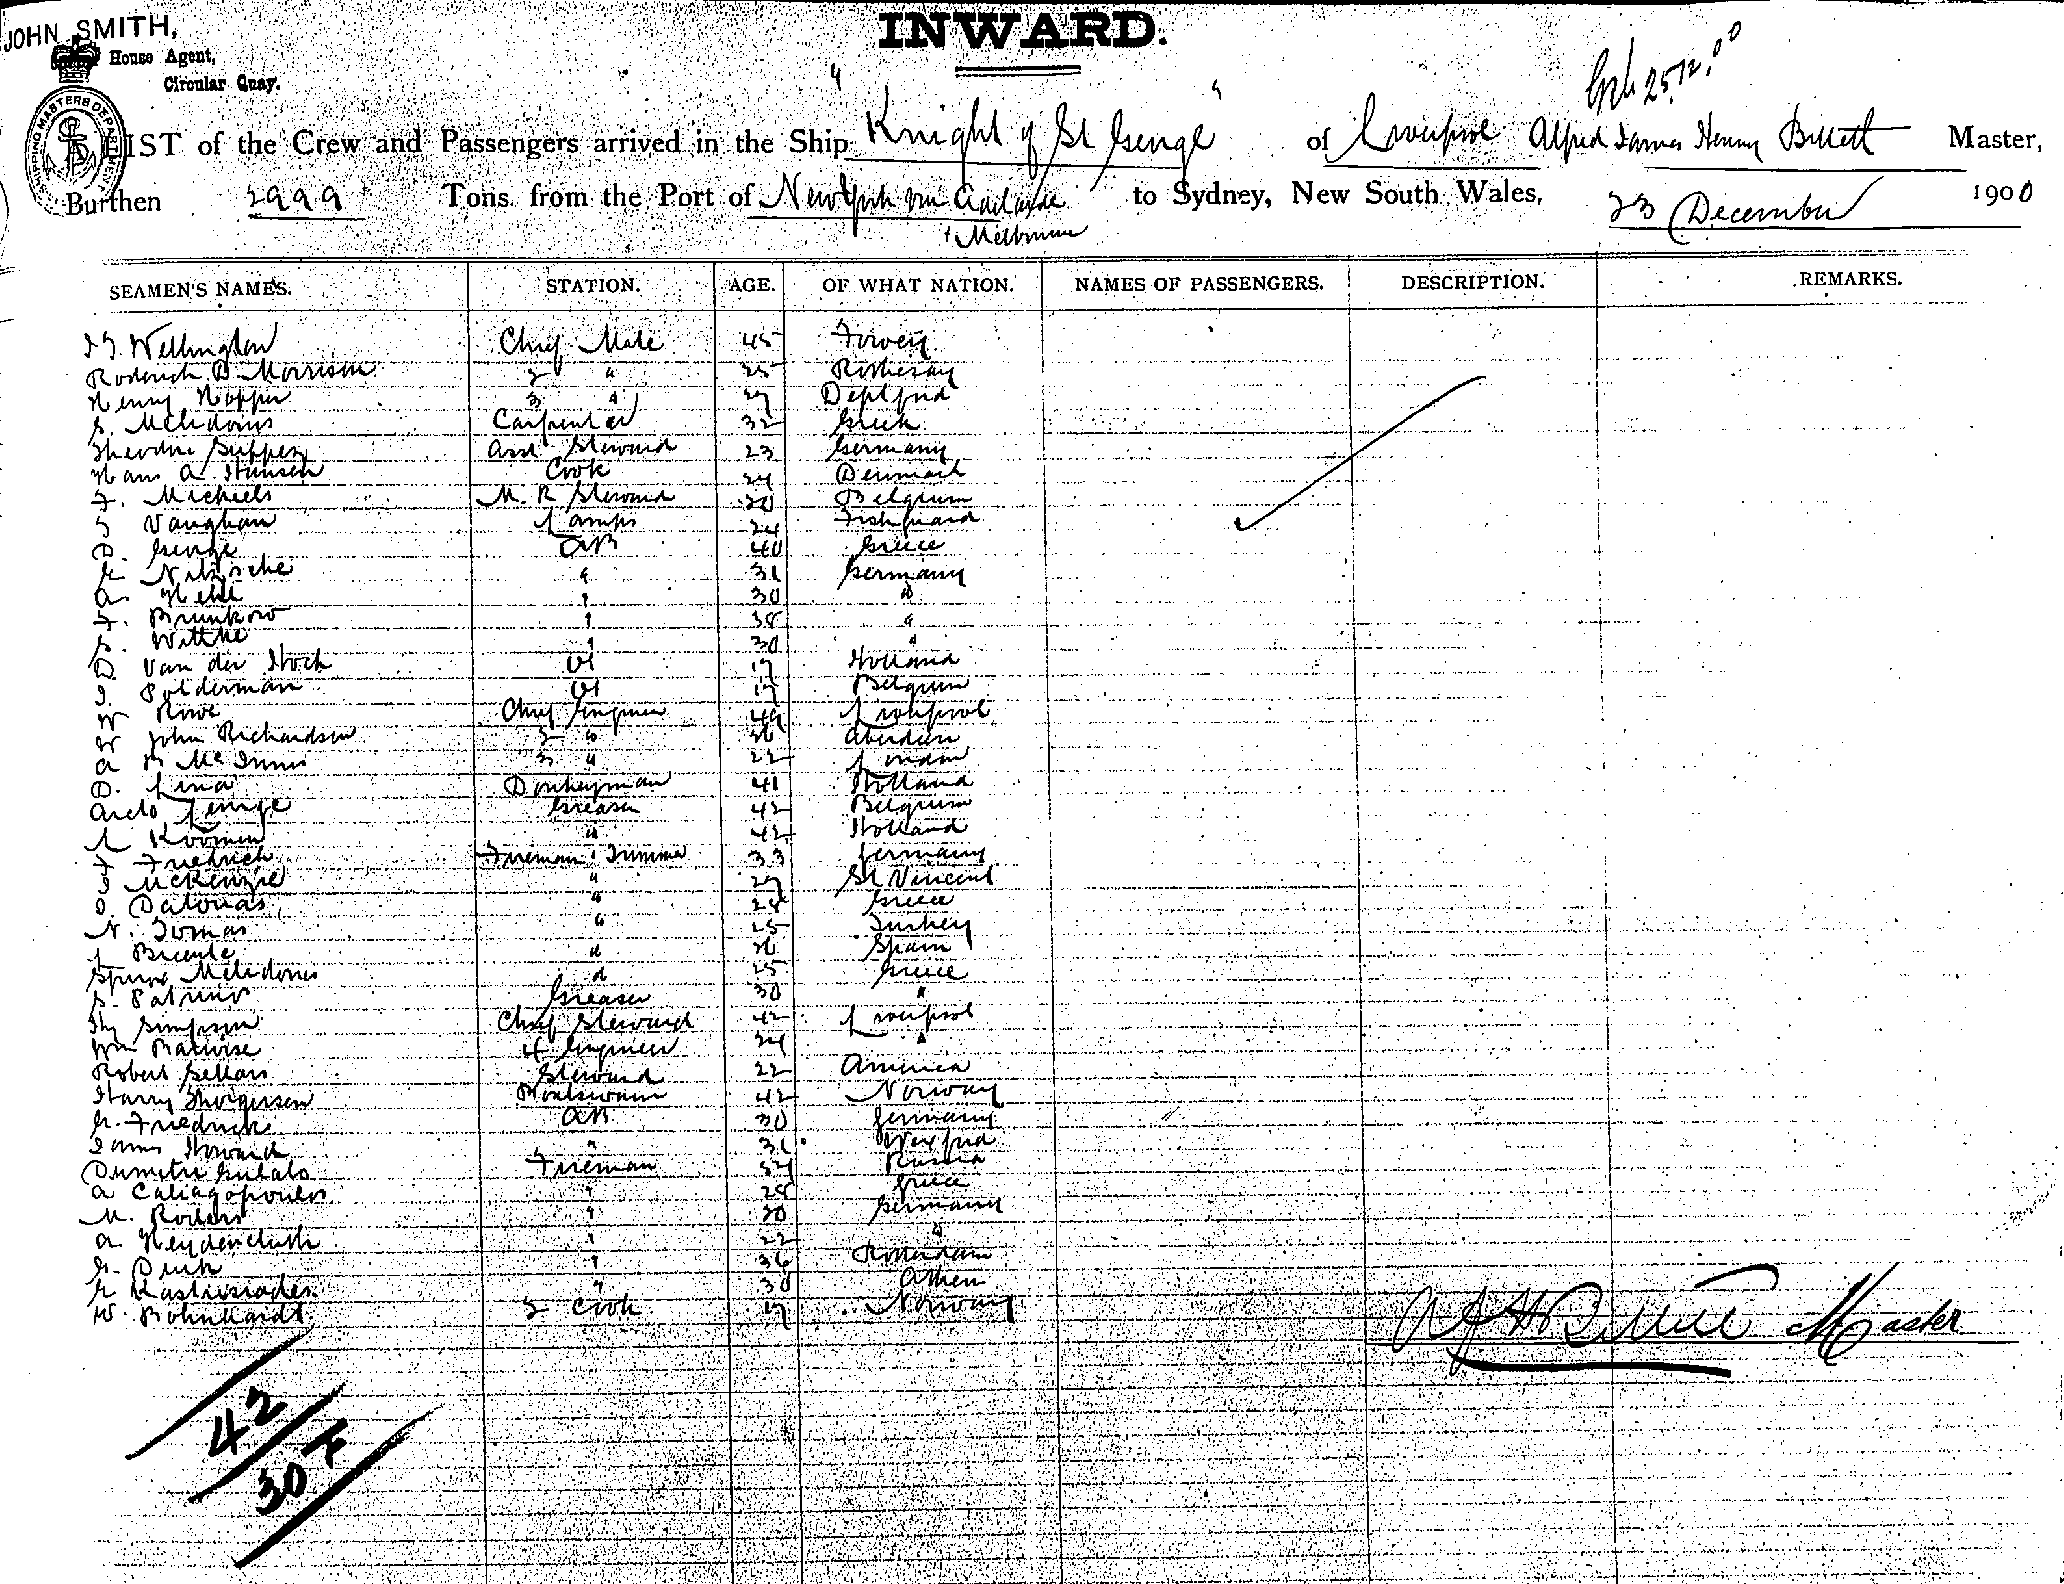 JOHN SMITH,
House Agent,
Circular Quay.
SHIPPING MASTERS DEPARTMENT
INWARD.
25.12.00
LIST of the Crew and Passengers arrived in the Ship "Knight of St George" of Liverpool Alfred James Henry Billett Master,
Burthen 2999 Tons from the Port of New York via Adelaide to Sydney, New South Wales, 23 December 1900
+ Melbourne
SEAMEN'S NAMES. STATION. AGE. OF WHAT NATION. NAMES OF PASSENGERS. DESCRIPTION. REMARKS.
Wellington Chief Mate 45 Fowey
Roderick D Morrison 2 " 25 Rothesay
Henry Hopper 3 " 27 Deptford
S. Meledonis Carpenter 32 Greek
Theodor Supper Asst Steward 23 Germany
Hans A Hansen Cook 24 Denmark
F. Michiels M. R Steward 20 Belgium
Vaughan Lamps 24 Fishguard
D. George AB 40 Greece
Nitzsche " 31 Germany
A. " 30 "
F. Brunkow " 38 "
Witthe " 30 "
D. Van der Hoek OS 17 Holland
Polderman OS 17 Belgium
W Rowe Chief Engineer 49 Liverpool
W John Richardson 2 " 26 Aberdeen
A B McInnis 3 " 22 London
D. Lina Donkeyman 41 Holland
Greaser 42 Belgium
L Koomen " 42 Holland
F Friedrich Fireman & Trimmer 33 Germany
J McKenzie " 27 St Vincent
Datonas " 28 Greece
N. Tomas " 25 Turkey
" 26 Spain
Spiros Meledonis " 25 Greece
Greaser 30 "
Thy Simpson Chief Steward 42 Liverpool
Wm 4 Engineer 24 "
Robert Sellars Steward 22 America
Harry Thorgersen Boatswain 42 Norway
G. Friedrich AB 30 Germany
James Howard " 31 Wexford
Dumitri Fireman 34 Russia
A Caliagopoulos " 28 Greece
M. " 30 Germany
A. " 22 "
" 36 Rotterdam
" 30 Athen
W. Bohnhardt 2 Cook 17 Norway
A J H Billett Master
42
30 F